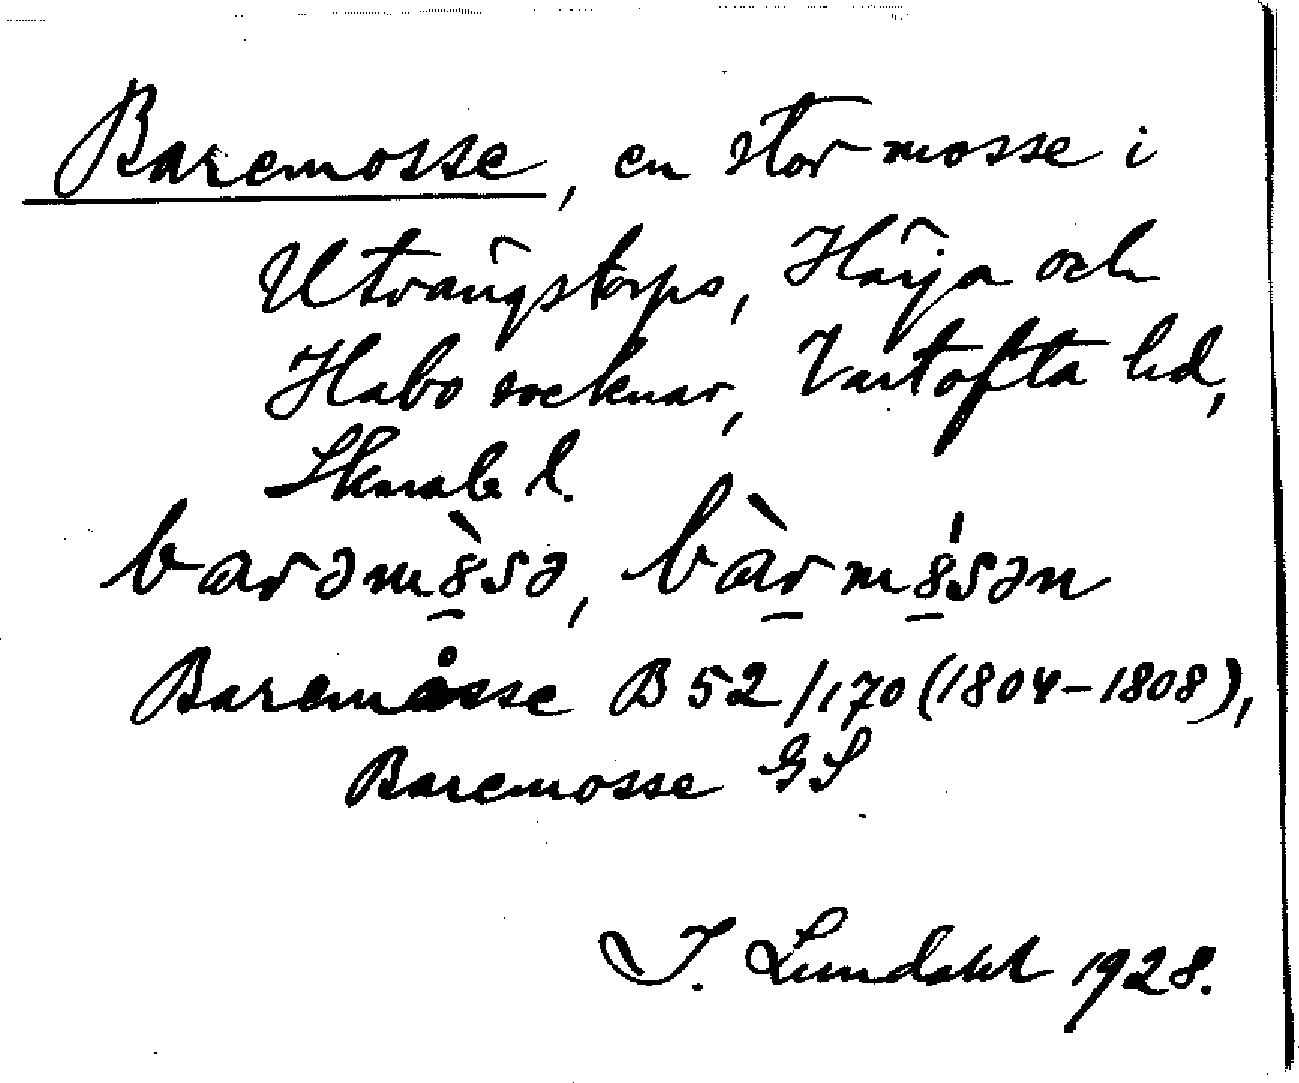 Baremosse, en stor mosse i
Utvängstorps, Härja och
Habo socknar, Vartofta hd,
Skarab. l.
barəmòsə, bàrmósən
Baremåsse B 52/170 (1804-1808),
Baremosse GS
I. Lundahl 1928.